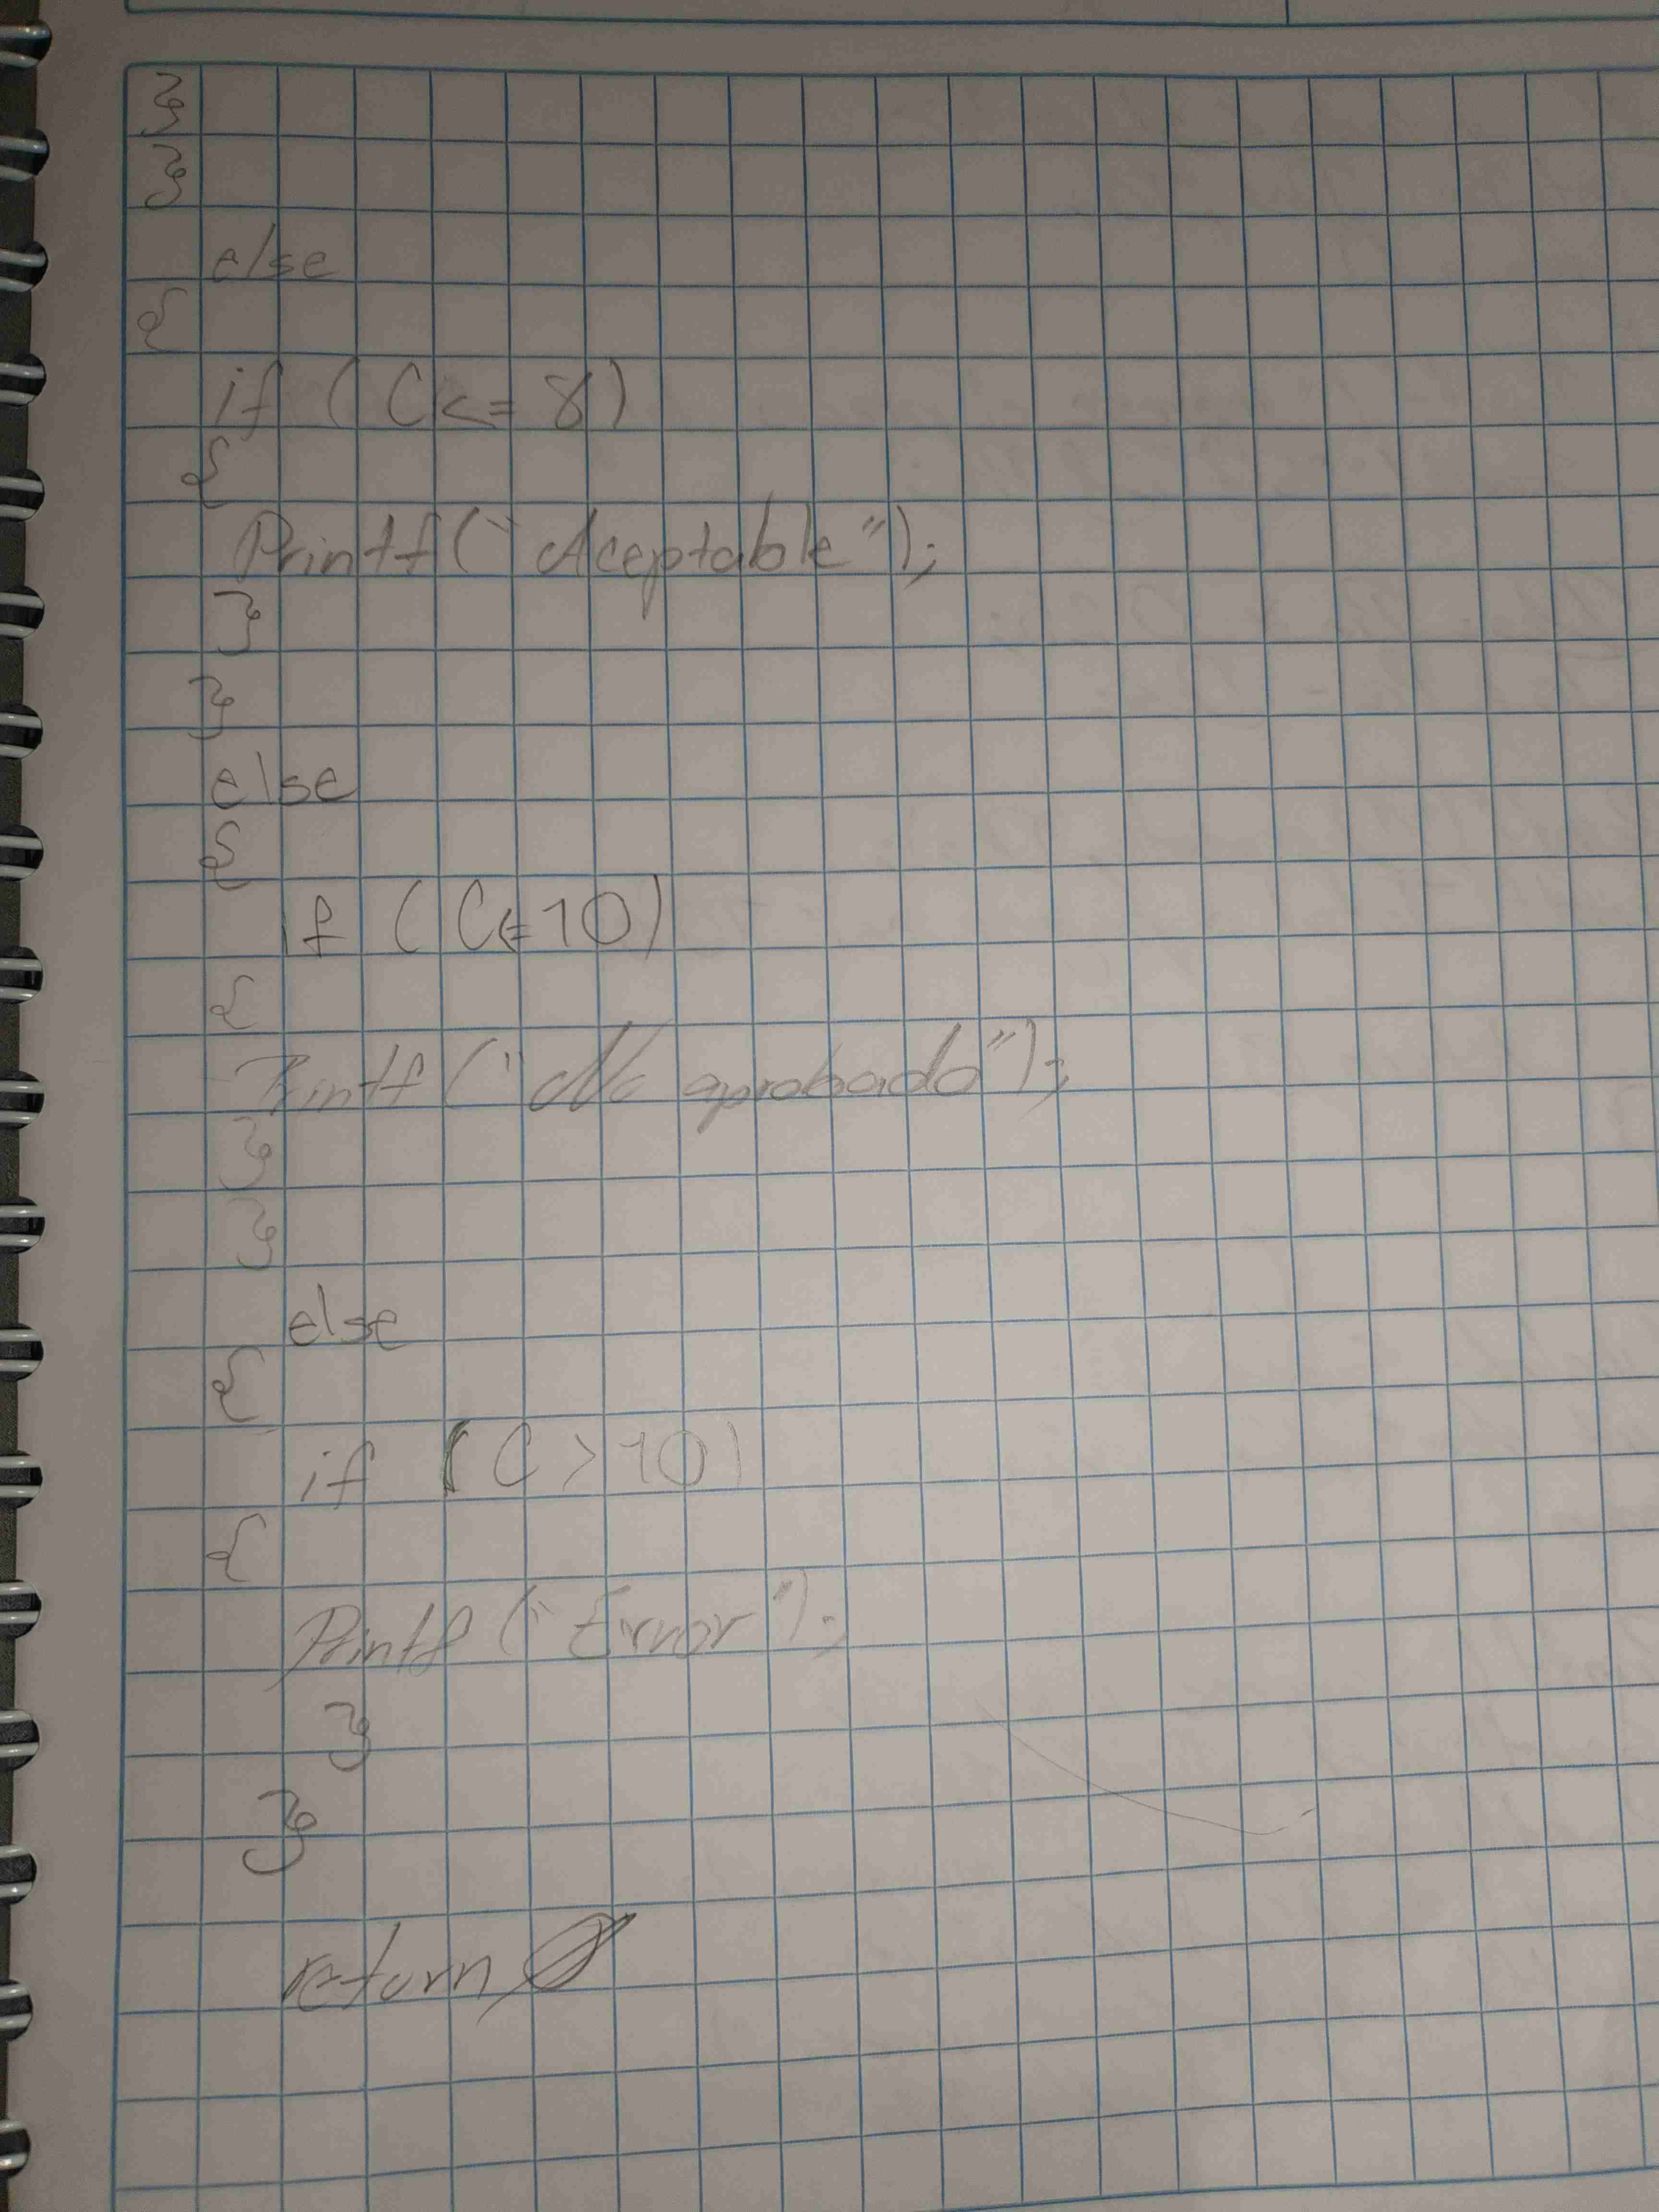 }
}
else
{
if (C <= 8)
{
Printf("Aceptable");
}
}
else
{
if (C <= 10)
{
Printf("No aprobado");
}
}
else
{
if (C > 10)
{
Printf("Error");
}
}
return 0